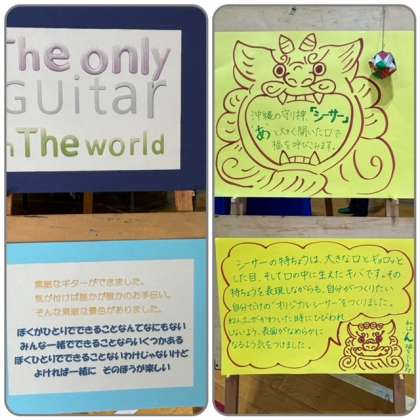 The only
Guitar
in The world
素敵なギターができました。
気が付けば誰かが誰かのお手伝い。
そんな素敵な景色がありました。
ぼくがひとりでできることなんてなにもない
みんな一緒でできることならいくつかある
ぼくひとりでできることないわけじゃないけど
よければ一緒に そのほうが楽しい
沖縄の守り神、「シーサー」
あっと大きく開いた口で
福を呼びこみます。
シーサーの特ちょうは、大きな口とギョロッと
した目、そして口の中に生えたキバです。その
特ちょうを表現しながらも、自分がつくりたい
自分だけの“オリジナルシーサー”をつくりました。
ねん土がかわいた時にひびわれ
しないよう、表面がなめらかに
なるよう気をつけました。